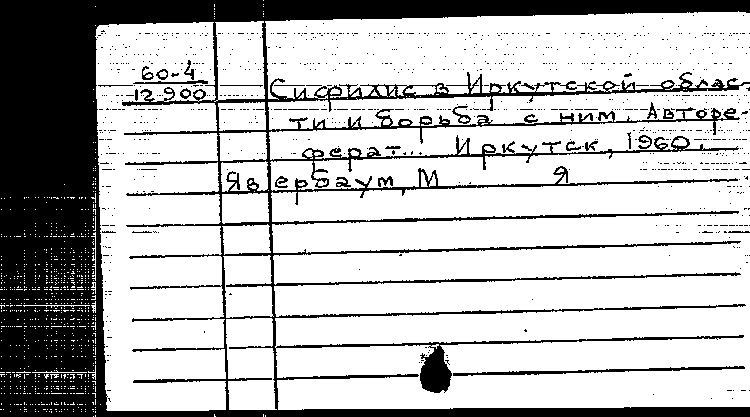 60-4
12900
Сифилис в Иркутской облас-
ти и борьба с ним. Авторе-
ферат... Иркутск, 1960.
Явербаум, М Я